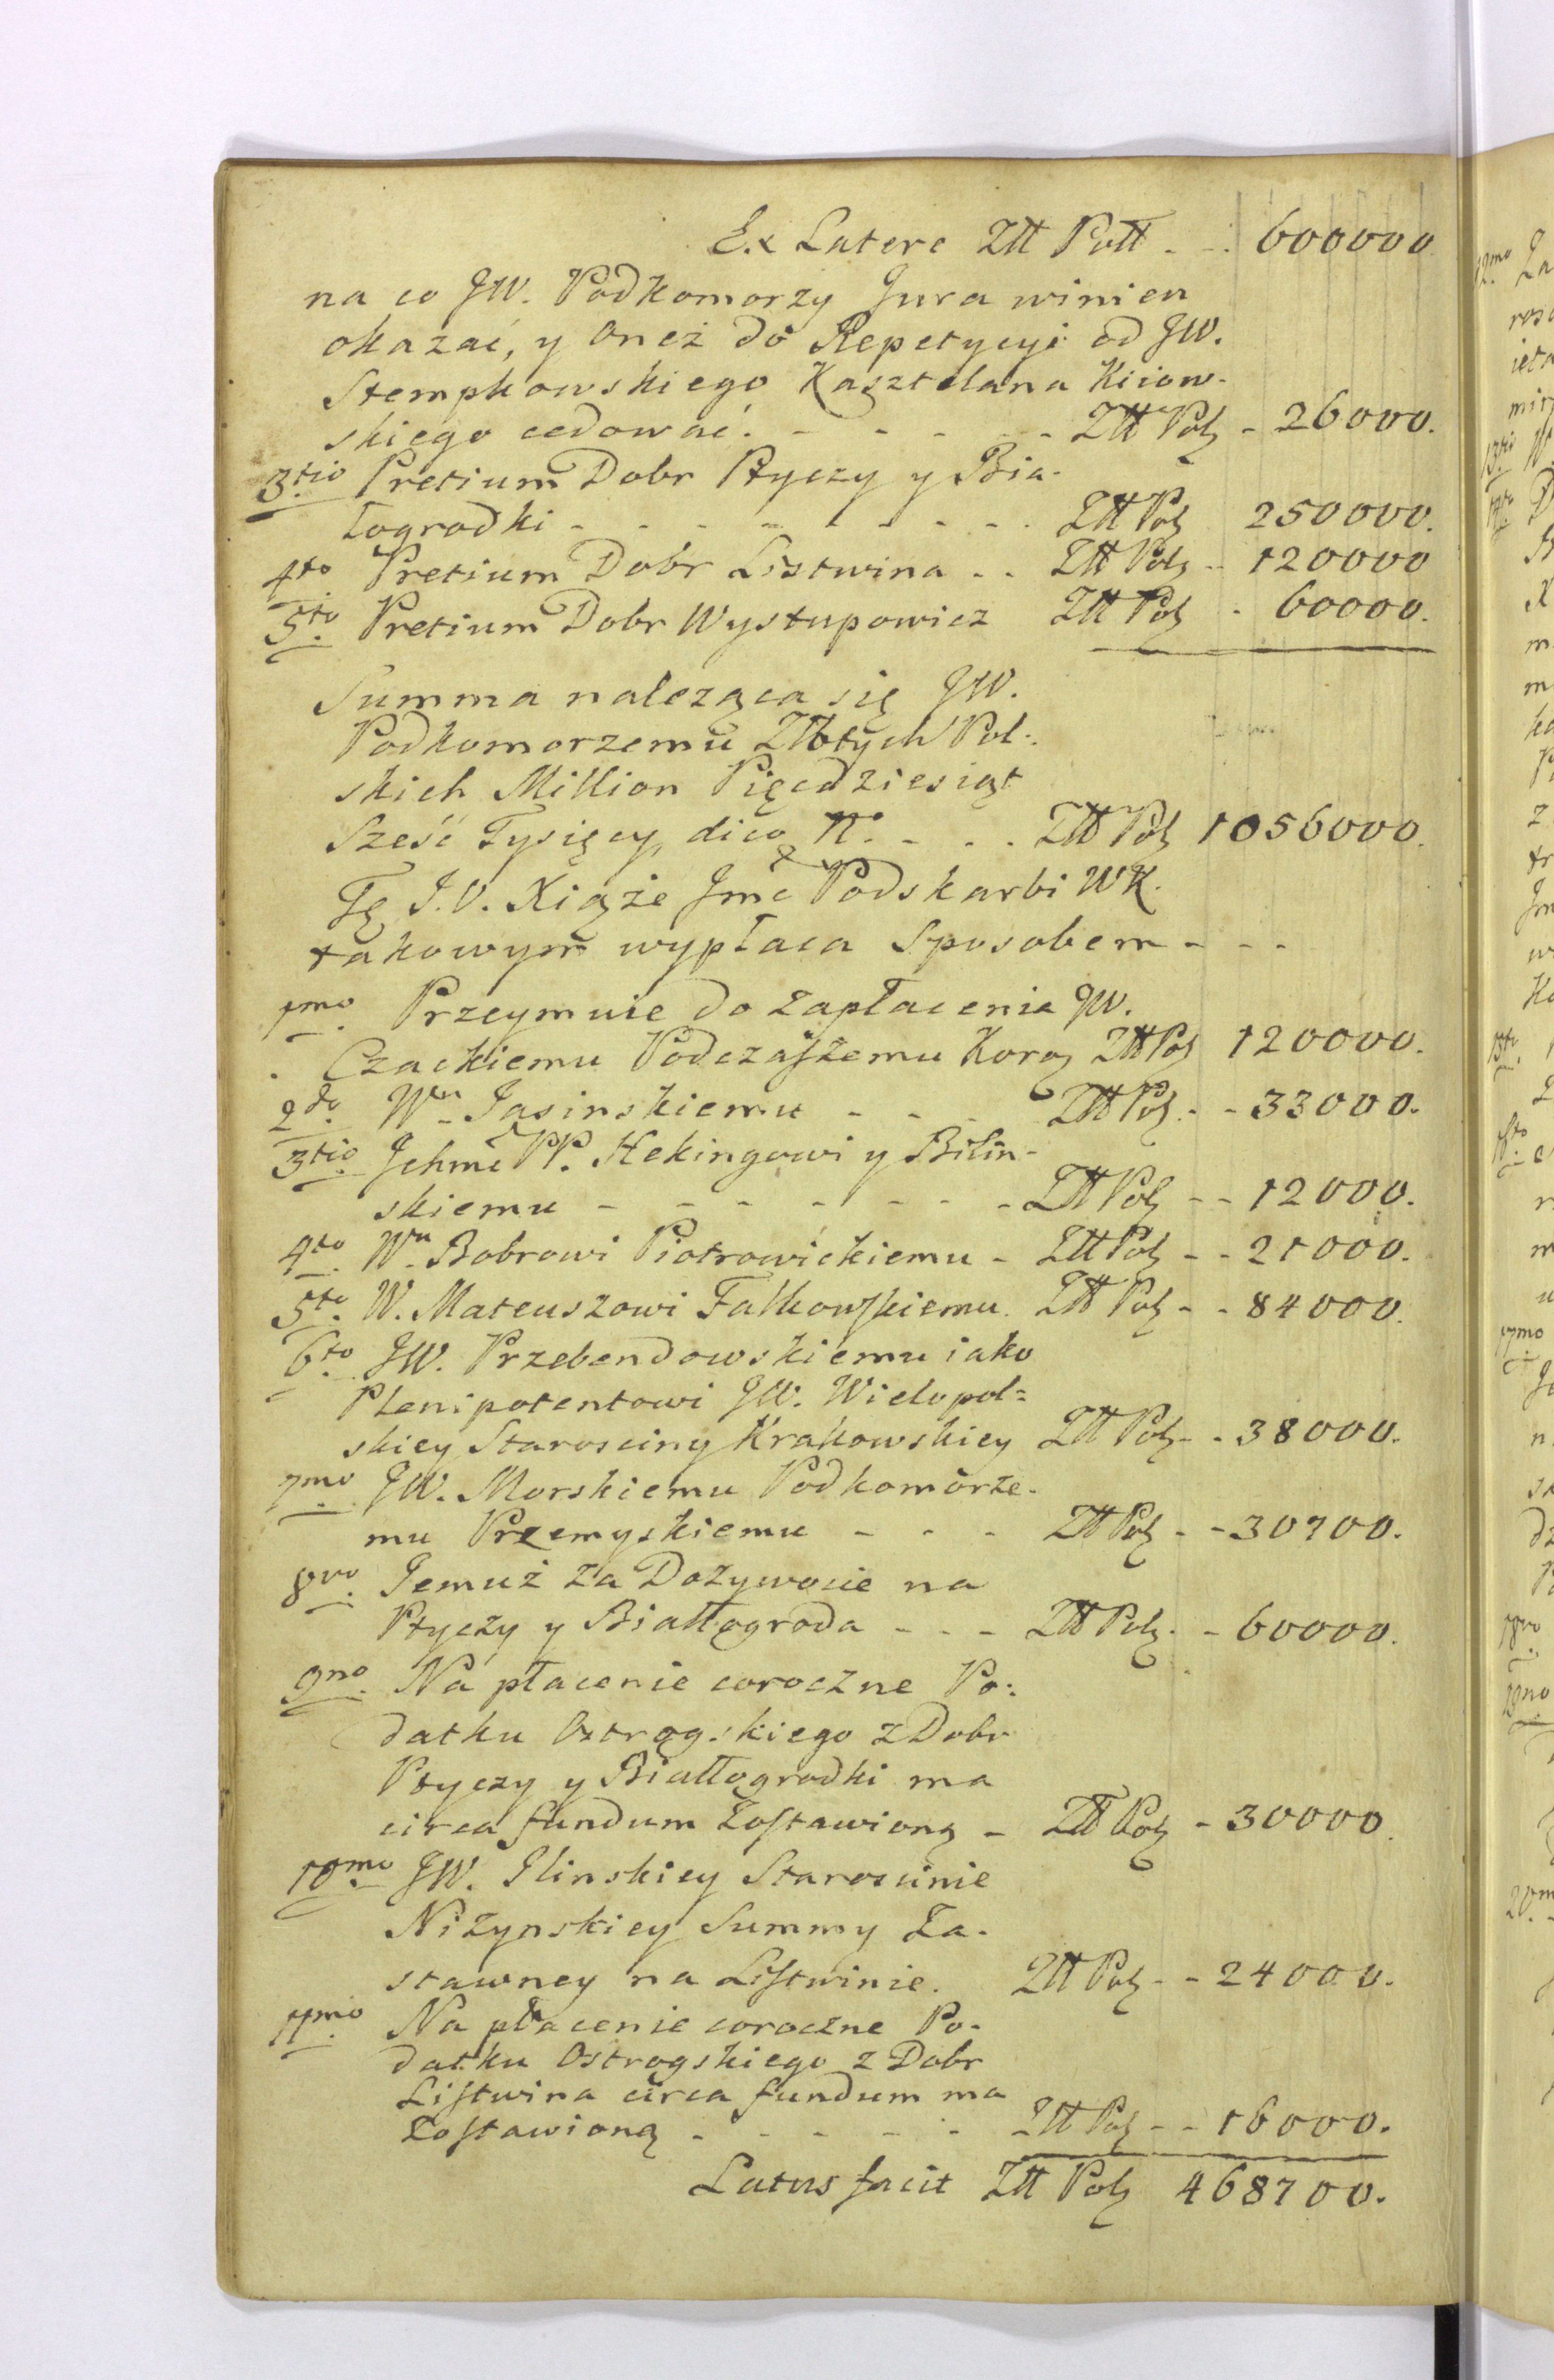 Ex Latere Ztt Poll - - 600000
na co JW. Podkomorzy Jura winien
okazać, y Oneż do Repetycyi od JW.
Stempkowskiego Kasztelana Kiiow-
skiego cedować. - - - - - Ztt Pol - 26000.
3tio Pretium Dobr Ptyczy y Bia-
łogrodki - - - - - - - - Ztt Pol 250000.
4to Pretium Dobr Listwina - - Ztt Pol - 120000
5to. Pretium Dobr Wystupowicz Ztt Pol - 60000.
Summa należąca się JW.
Podkomorzemu Złłotych Pol-
skich Million Pięcdziesiąt
Sześć Tysięcy, dico No. - - - Ztt Pol 1056000.
Tę J.O. Xiąże Jmć Podskarbi WK.
takowym wypłaca Sposobem - - -
1mo. Przeymuie do Zapłacenia JW.
Czackiemu Podczaszemu Koro Ztt Pol 120000.
2do. Wu Jasinskiemu - - - Ztt Pol. - - 33000.
3tio. Jchmć PP. Hekingowi y Bilin-
skiemu - - - - - - - Ztt Pol - - 12000.
4to. Wu Bobrowi Piotrowickiemu - Ztt Pol - - 21000.
5to. W. Mateuszowi Falkowskiemu. Ztt Pol - - 84000.
6to. JW. Przebendowskiemu iako
Plenipotentowi JW. Wielopol=
skiey Starosciny Krakowskiey Ztt Pol - - 38000.
7mo. JW. Morskiemu Podkomorze-
mu Przemyskiemu - - - Ztt Pol - - 30700.
8vo. Jemuż za Dożywocie na
Ptyczy y Białłogroda - - - Ztt Pol. - - 60000.
9no. Na płacenie coroczne Po-
datku Ostrogskiego z Dobr
Ptyczy y Białłogrodki ma
circa fundum Zostawioną - Ztt Pol - 30000.
10mo. JW. Ilinskiey Starościnie
Niżynskiey Summy Za-
stawney na Listwinie. Ztt Pol - - 24000.
11mo. Na płacenie coroczne Po-
datku Ostrogskiego z Dobr
Listwina circa fundum ma
Zostawioną - - - - - - Ztt Pol - - 16000.
Latus facit Ztt Pol 468700.